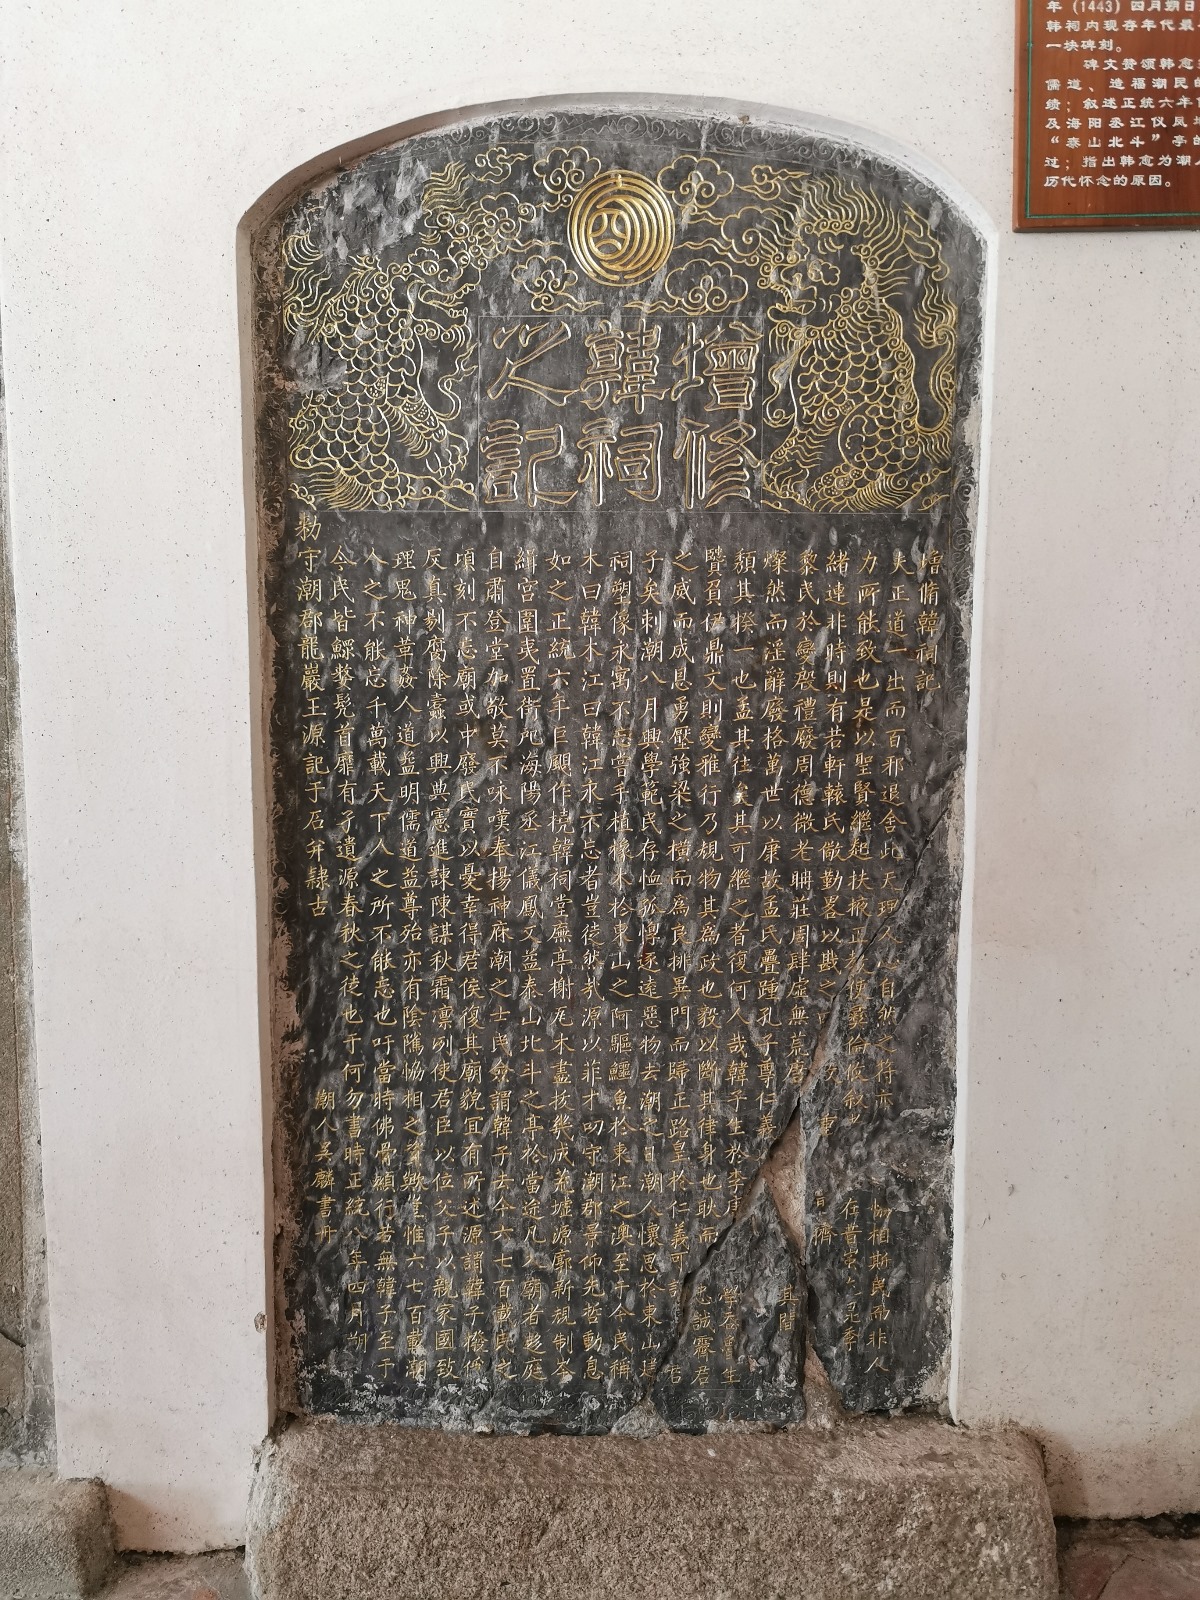 增修韓祠之記
增脩韓祠記
夫正道一出而百邪退舍此天理人心自然之符亦協相斯民而非人
力所能致也是以聖賢繼起扶掖正教使彝倫攸敘在昔之季
緒連非時則有若軒轅氏儆勤畧以戡之重可濟
黎民於變殷禮廢周德微老聃莊周肆虛無荒唐其間
燦然而淫辭廢格萬世以康故孟氏疊踵孔子專仁義
頹其揆一也孟其往矣其可繼之者復何人哉韓子生於李唐學
贔負偽鼎文則變雅行乃規物其為政也毅以斷其律身也耿而忠誠霽君
之威而成恩勇壓強梁之橫而為良排異門而歸正路皇於仁義可謂君
子矣刺潮八月興學範民存恤孤惸逐遠惡物去潮之日潮人懷思於東山建
祠塑像永寓不忘嘗手植橡木於東山之阿驅鱷魚於東江之澳至于今民稱
木曰韓木江曰韓江永不忘者豈徒然哉源以菲才叨守潮郡景仰先哲動息
如之正統六年巨颶作橈韓祠堂廡亭榭瓦木盡拔幾成荒墟源廓新規制岑
緝宮圍夷置衛戺海陽丞江儀鳳又益泰山北斗之亭於當途凡入廟者趍庭
自肅登堂加敬莫不咏嘆奉揚神庥潮之士民僉謂韓子去今六七百載民之
頃刻不忘廟或中廢民實以憂幸得君侯復其廟貌宜有所述源謂韓子撥偽
反真剔腐除蠹以興典憲進諫陳謀秋霜凛冽使君臣以位父子以親家國致
理鬼神革姦人道益明儒道益尊殆亦有陰隲協相之資歟豈惟六七百載潮
人之不能忘千萬載天下人之所不能忘也吁當時佛骨頗行若無韓子至于
今民皆鰥鰲髡首靡有孑遺源春秋之徒也于何勿書時正統八年四月朔
勑守潮郡龍巖王源記于石并隸古 潮人吳麟書丹
年(1443)四月朔日
韩祠内现存年代最
一块碑刻。
碑文赞颂韩愈
儒道、造福潮民的
绩;叙述正统六年
及海阳丞江仪凤
“泰山北斗”亭的
过;指出韩愈为潮人
历代怀念的原因。